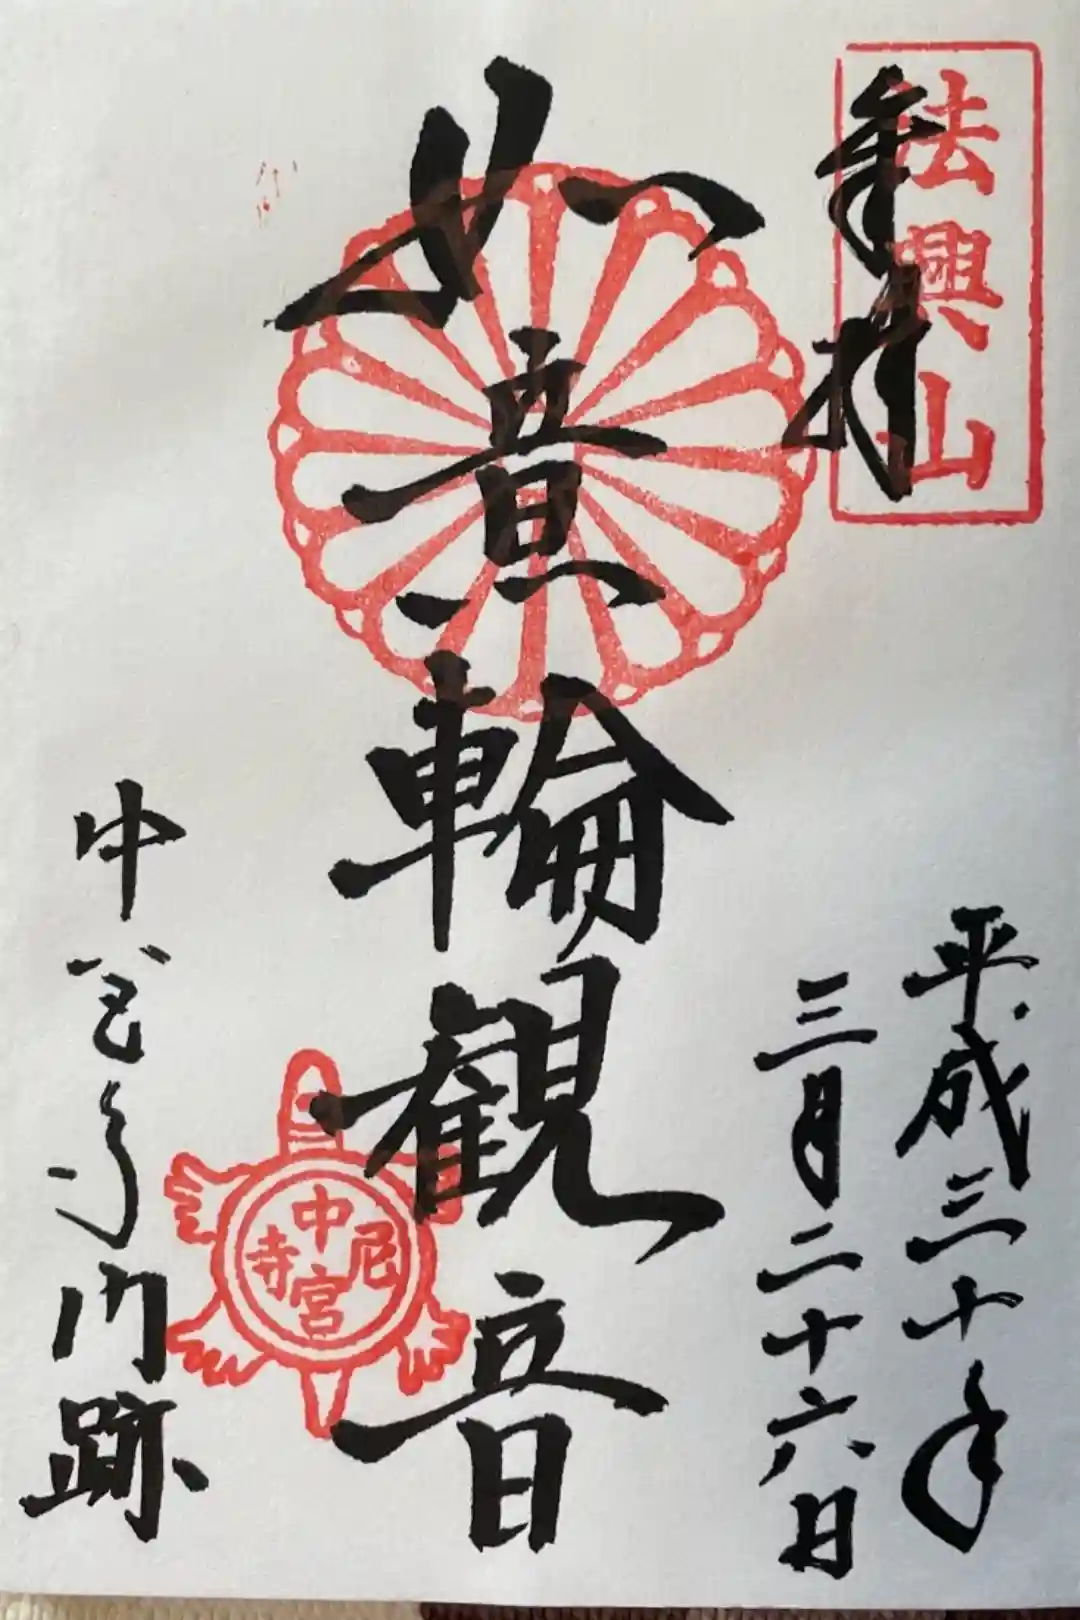 法興山
奉拝
平成三十年
三月二十六日
如意輪観音
中宮尼寺
中宮寺門跡